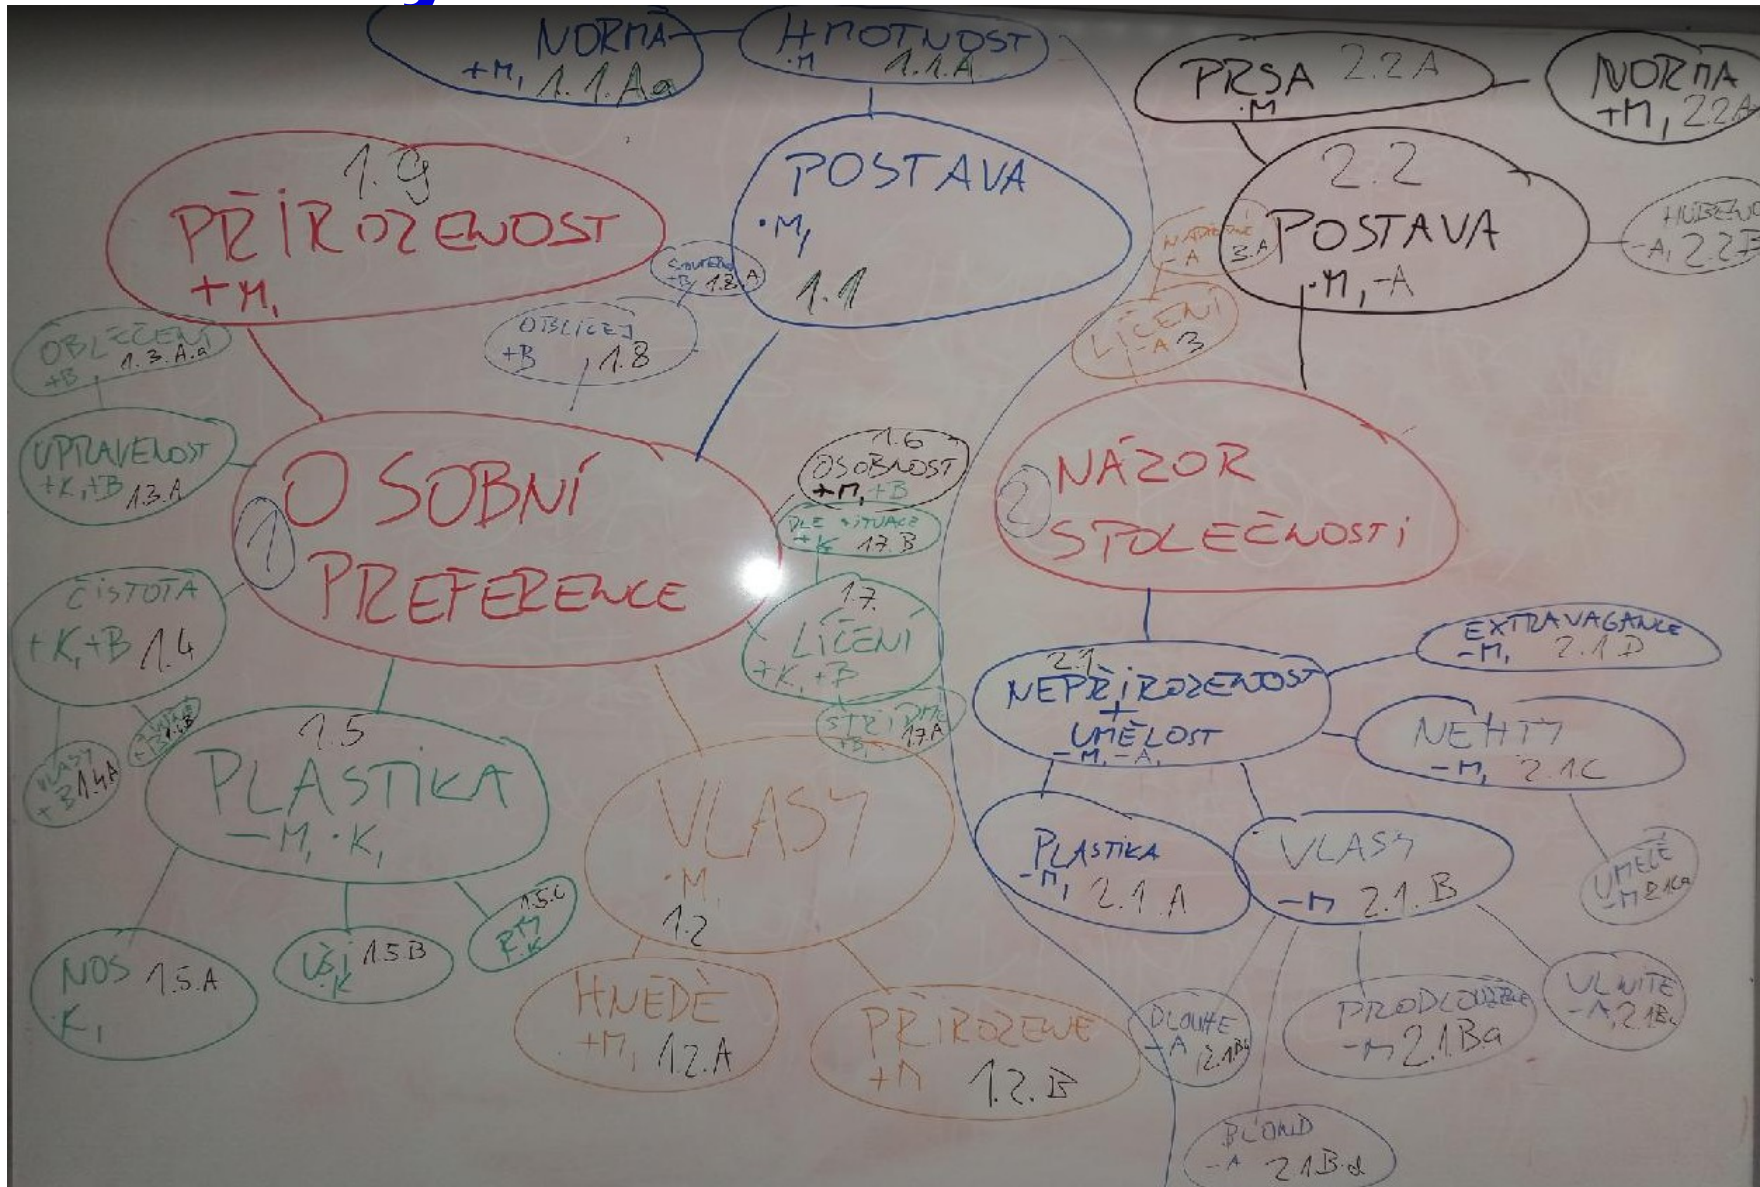 NORMA
+M, 1.1.Aa
HMOTNOST
·M 1.1.A
PRSA 2.2A
·M
NORMA
+M, 22A
1.9
PŘIROZENOST
+M,
POSTAVA
·M,
1.1
2.2
POSTAVA
·M, -A
-A, 2.2B
3.A
-A
LÍČENÍ
-A 3
+B 1.8.A
OBLIČEJ
+B 1.8
OBLEČENÍ
+B 1.3.A.a
UPRAVENOST
+K, +B 1.3.A
1
OSOBNÍ
PREFERENCE
1.6
OSOBNOST
+M, +B
DLE SITUACE
+K 1.7.B
1.7.
LÍČENÍ
+K, +B
STŘÍDMÉ
+B, 1.7A
2
NÁZOR
SPOLEČNOSTI
ČISTOTA
+K, +B 1.4
VLASY
+B 1.4A
1.5
PLASTIKA
-M, ·K,
NOS 1.5.A
·K,
UŠI 1.5.B
·K
1.5.C
RTY
·K
VLASY
·M,
1.2
HNEDÉ
+M, 1.2.A
PŘIROZENÉ
+M 1.2.B
2.1
NEPŘIROZENOST
+
UMĚLOST
-M, -A,
EXTRAVAGANCE
-M, 2.1.D
NEHTY
-M, 2.1C
UMELÉ
-M 2.1Ca
PLASTIKA
-M, 2.1.A
VLASY
-M 2.1.B
DLOUHE
-A
PRODLOUŽENE
-M 2.1Ba
VLNITE
-A, 2.1B
BLOND
-A 2.1B.d